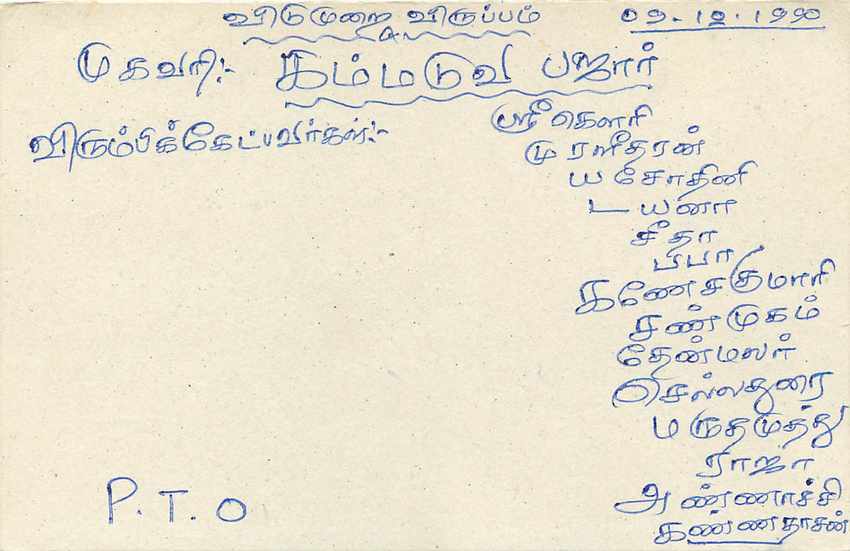 விடுமுறை விருப்பம் 09.12.1990
முகவரி:- கம்மடுவ பஜார்
விரும்பிக்கேட்பவர்கள்:- ஸ்ரீகௌரி
முரளீதரன்
யசோதினி
டயனா
சீதா
பீபா
கணேசகுமாரி
சண்முகம்
தேன்மலர்
செல்லதுரை
மருதமுத்து
ராஜா
அண்ணாச்சி
P.T.O கண்ணதாசன்